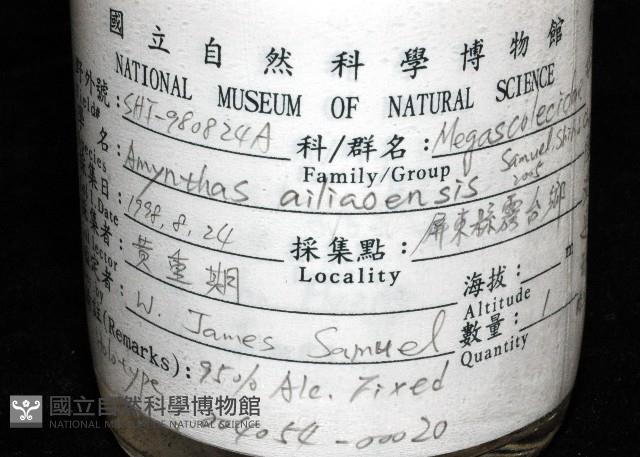 國立自然科學博物館
NATIONAL MUSEUM OF NATURAL SCIENCE
野外號: SHJ-980824A 科/群名: Megascolecidae
Field# Family/Group
學名: Amynthas ailiaoensis Samuel, Shih & 2005
Species
採集日: 1998.8.24 採集點: 屏東縣霧台鄉
Date Locality
採集者: 黃重期 海拔: m
Collector Altitude
定者: W. James Samuel 數量: 1
by Quantity
(Remarks): 95% Alc. Fixed
Holotype
4054-00020
國立自然科學博物館
NATIONAL MUSEUM OF NATURAL SCIENCE